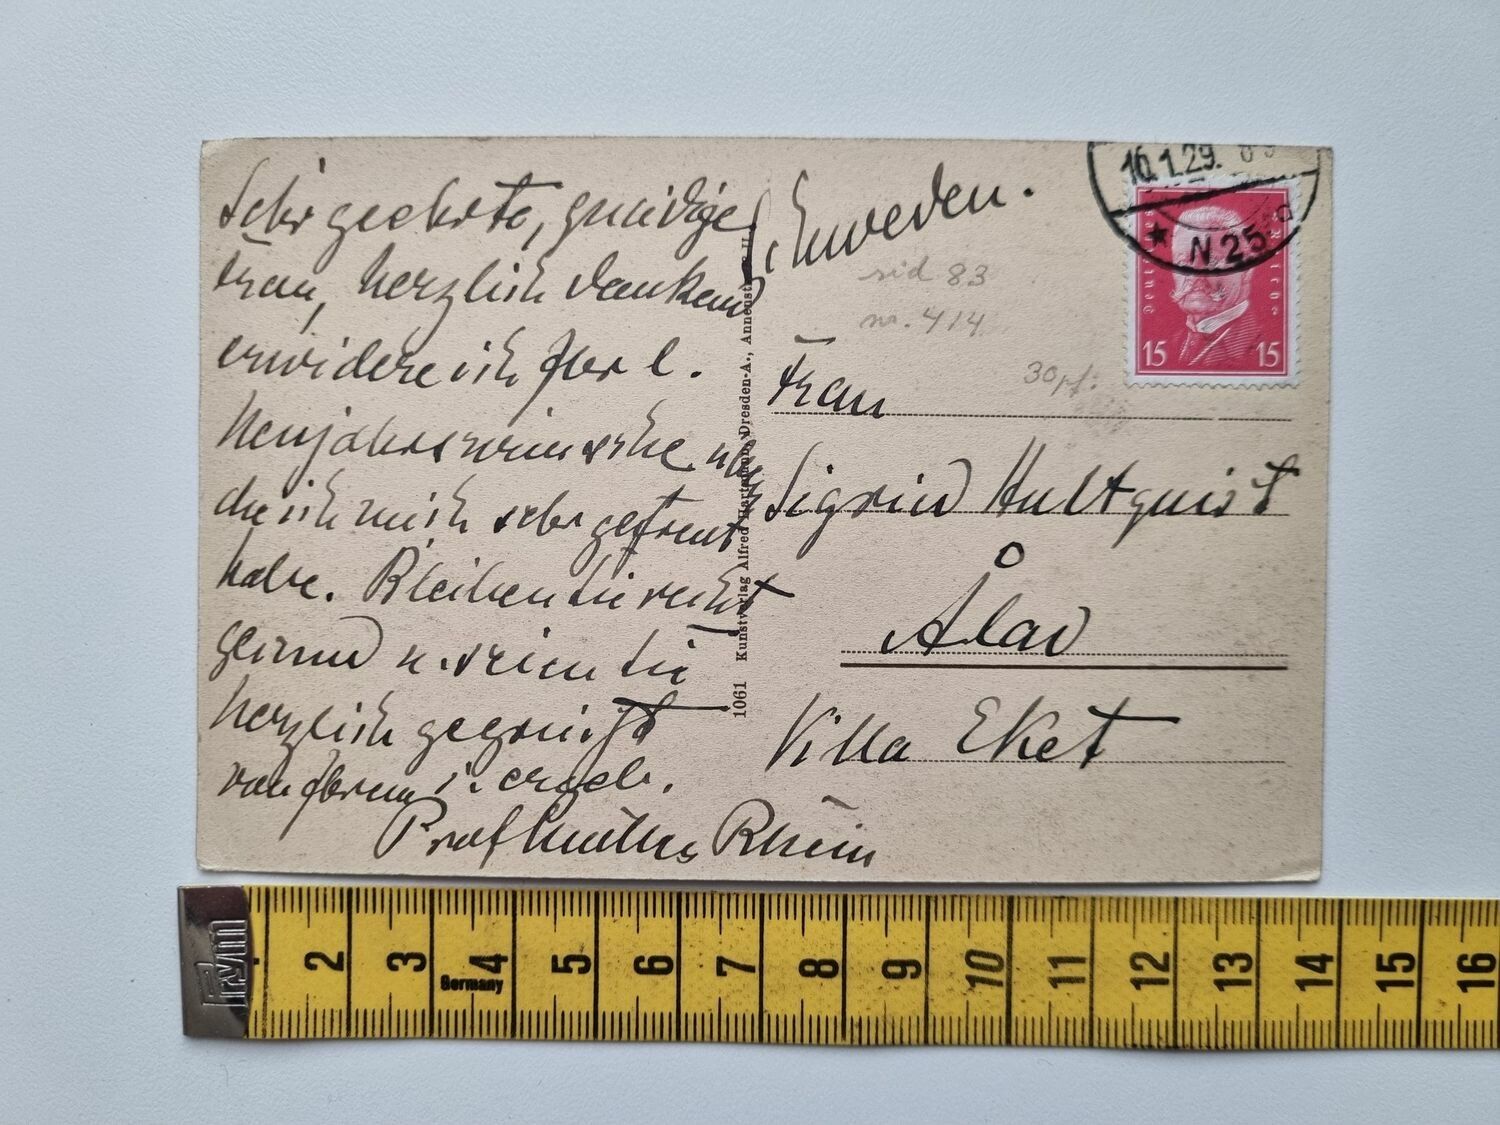 Sehr geehrte, gnädige
Frau, herzlich dankend
erwidere ich Ihre l.
Neujahrswünsche, über
die ich mich sehr gefreut
habe. Bleiben Sie recht
gesund u. seien Sie
herzlich gegrüßt
von Ihrem
Prof Rhein
Schweden.
sid 83
nr. 414
30 pf:
Frau
Sigrid Hultquist
Ålad
Villa Eket
1061 Kunstverlag Alfred Hartmann, Dresden-A., Annenstr.
10.1.29.
* N 25
Deutsches Reich
15 15
Prym
2 3 4 5 6 7 8 9 10 11 12 13 14 15 16
Germany